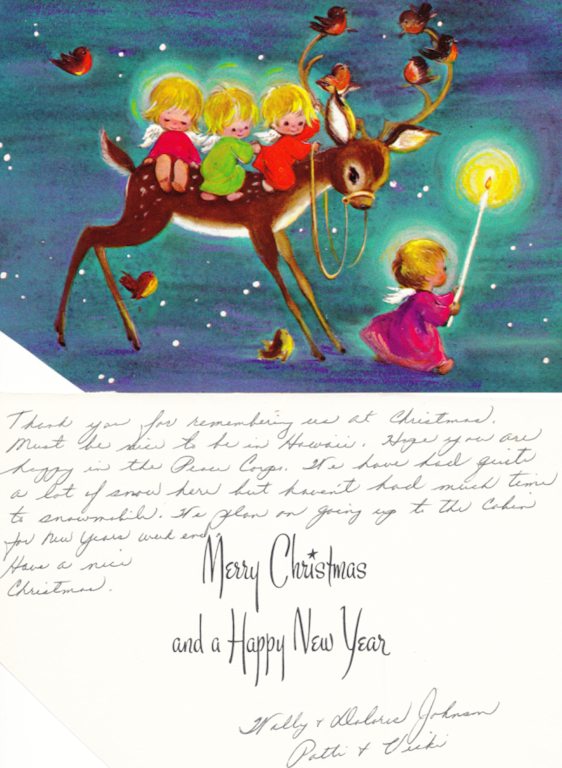 Thank you for remembering us at Christmas.
Must be nice to be in Hawaii. Hope you are
happy in the Peace Corps. We have had quit
a lot of snow here but havent had much time
to snowmobile. We plan on going up to the Cabin
for New Years week end.
Have a nice
Christmas.
Merry Christmas
and a Happy New Year
Wally + Doloris Johnson
Patti + Vicki